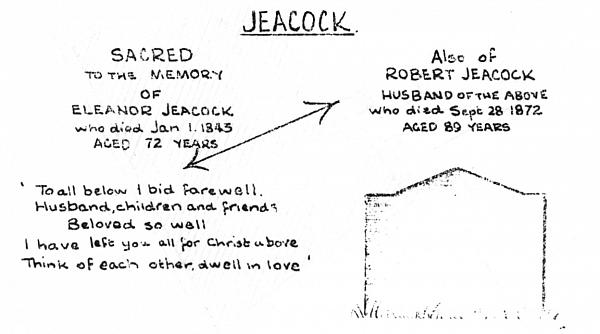 JEACOCK.
SACRED
TO THE MEMORY
OF
ELEANOR JEACOCK
who died Jan 1. 1843
AGED 72 YEARS
Also of
ROBERT JEACOCK
HUSBAND OF THE ABOVE
who died Sept 28 1872
AGED 89 YEARS
' To all below I bid farewell.
Husband, children and friends
Beloved so well
I have left you all for Christ above
Think of each other, dwell in love '